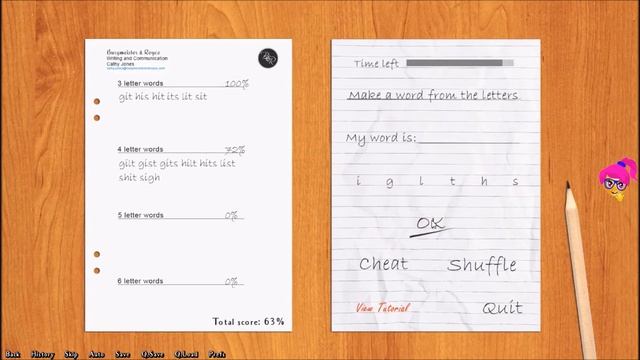 Burgmeister & Royce
Writing and Communication
Cathy Jones
3 letter words 100%
git his hit its lit sit
4 letter words 72%
gilt gist gits hilt hits list
shit sigh
5 letter words 0%
6 letter words 0%
Total score: 63%
Time left
Make a word from the letters
My word is:
i g l t h s
OK
Cheat Shuffle
View Tutorial Quit
Back History Skip Auto Save Q.Save Q.Load Prefs